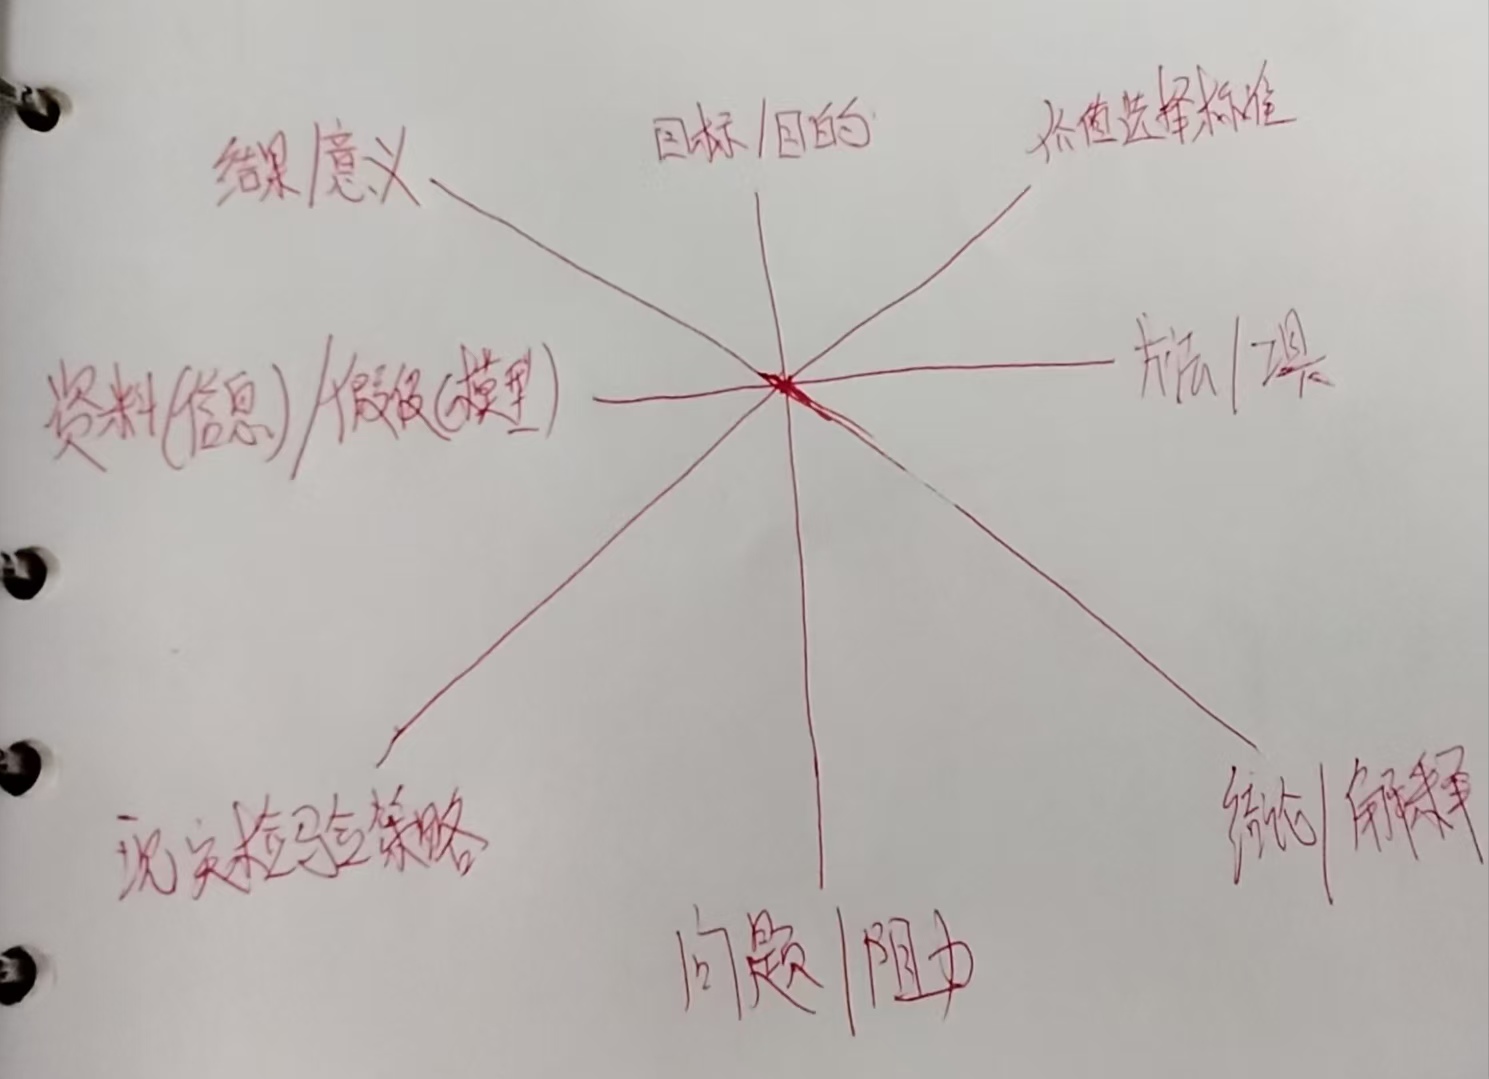 结果/意义
目标/目的
价值选择标准
资料(信息)/假设(模型)
方法/工具
现实检验策略
问题/阻力
结论/解释